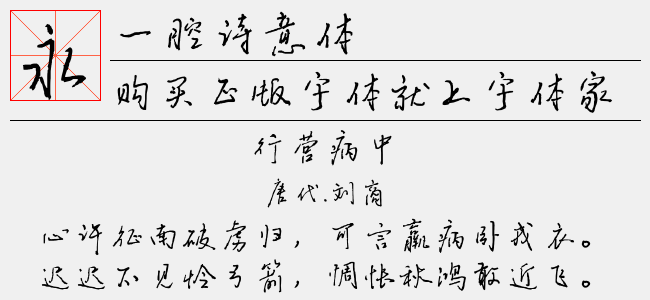 永
一腔诗意体
购买正版字体就上字体家
行营病中
唐代.刘商
心许征南破虏归，可言羸病卧戎衣。
迟迟不见怜弓箭，惆怅秋鸿敢近飞。